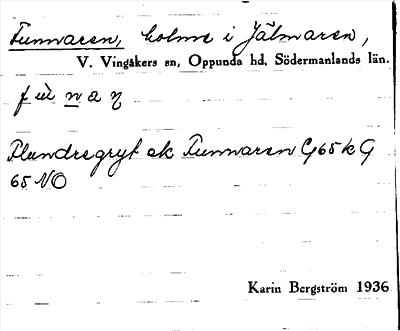 Funnaren, holme i Jälmaren,
V. Vingåkers sn, Oppunda hd, Södermanlands län.
Plundregryt ek Funnaren G65k G
65 NO
Karin Bergström 1936